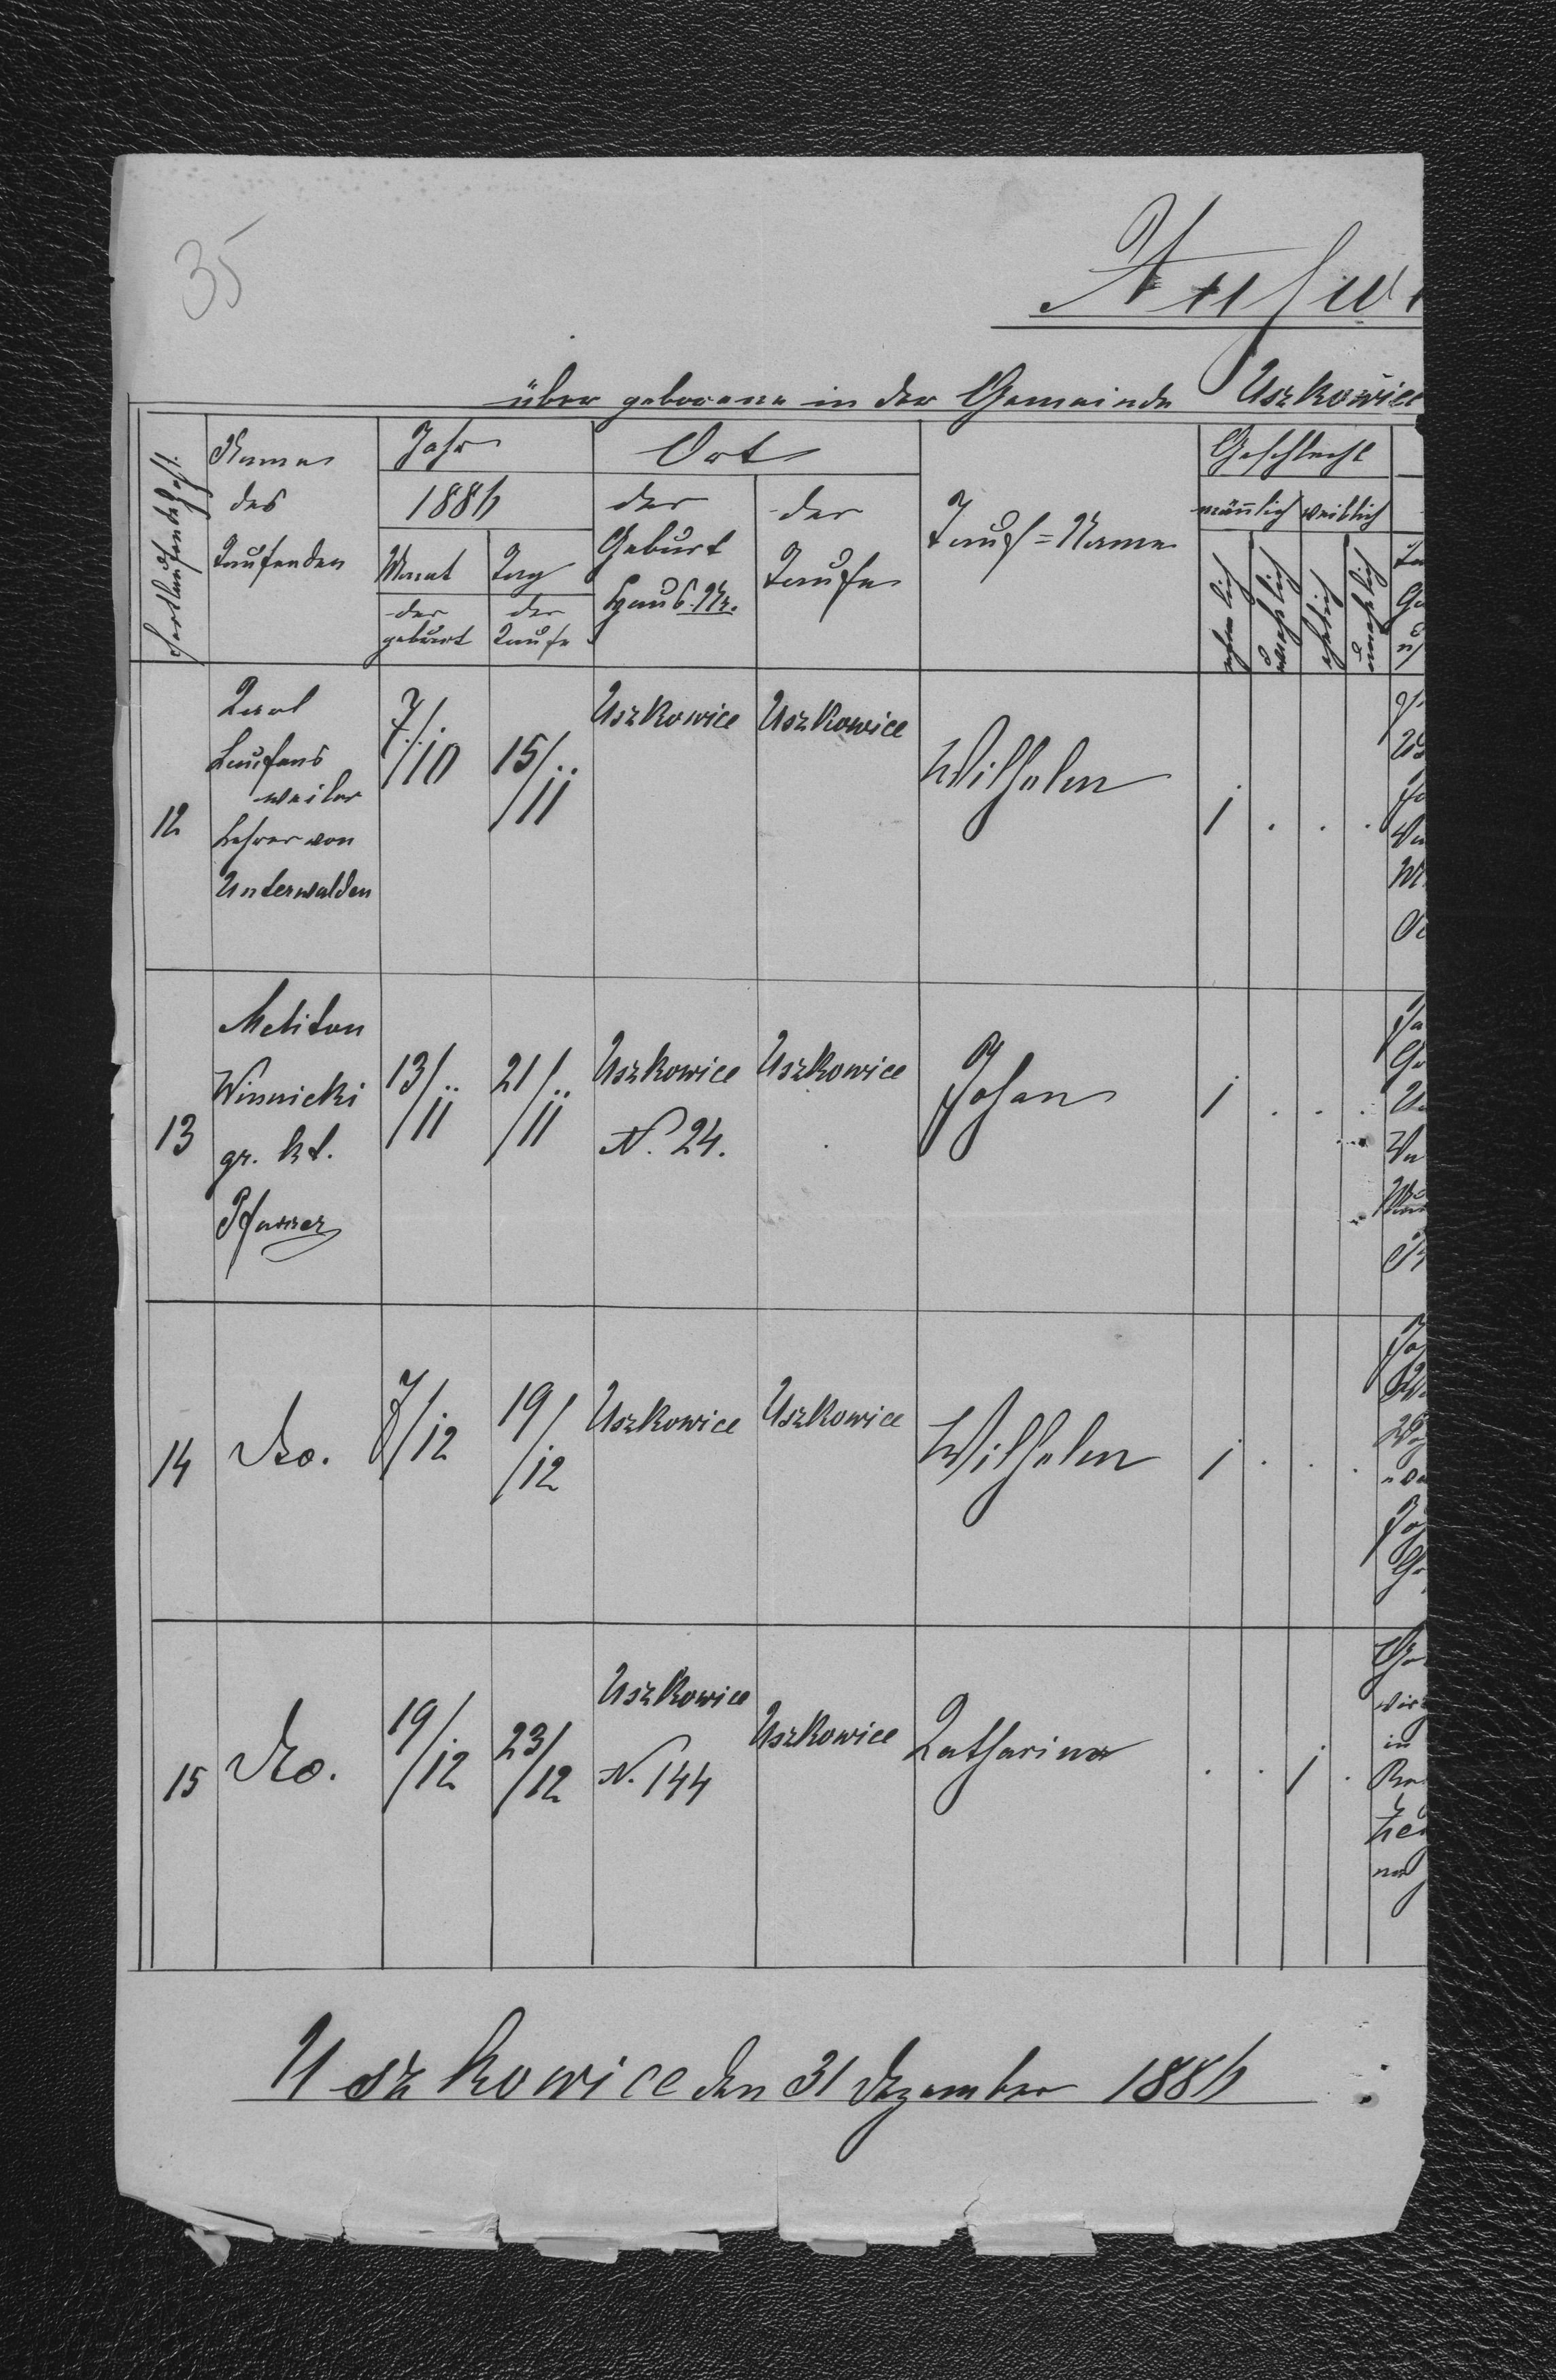 35
Ausw
über geborene in der Gemeinde Uszkowice
Fortlaufende Zahl.
Name des Taufenden
Jahr
1886
Monat der geburt
Tag der Taufe
Ort
der Geburt Haus-Nr.
der Taufe
Tauf=Name
Geschlecht
männlich weiblich
ehelich
unehelich
ehelich
unehelich
12
Karl
Laufens
weiler
Lehrer von
Unterwalden
7/10
15/11
Uszkowice
Uszkowice
Wilhelm
1 . . .
13
Meliton
Winnicki
gr. kt.
Pfarrer
13/11
21/11
Uszkowice
N. 24.
Uszkowice
Johan
1 . . .
14
dto.
7/12
19/12
Uszkowice
Uszkowice
Wilhelm
1 . . .
15
dto.
19/12
23/12
Uszkowice
N. 144
Uszkowice
Katharina
. . 1 .
Uszkowice den 31 Dezember 1886